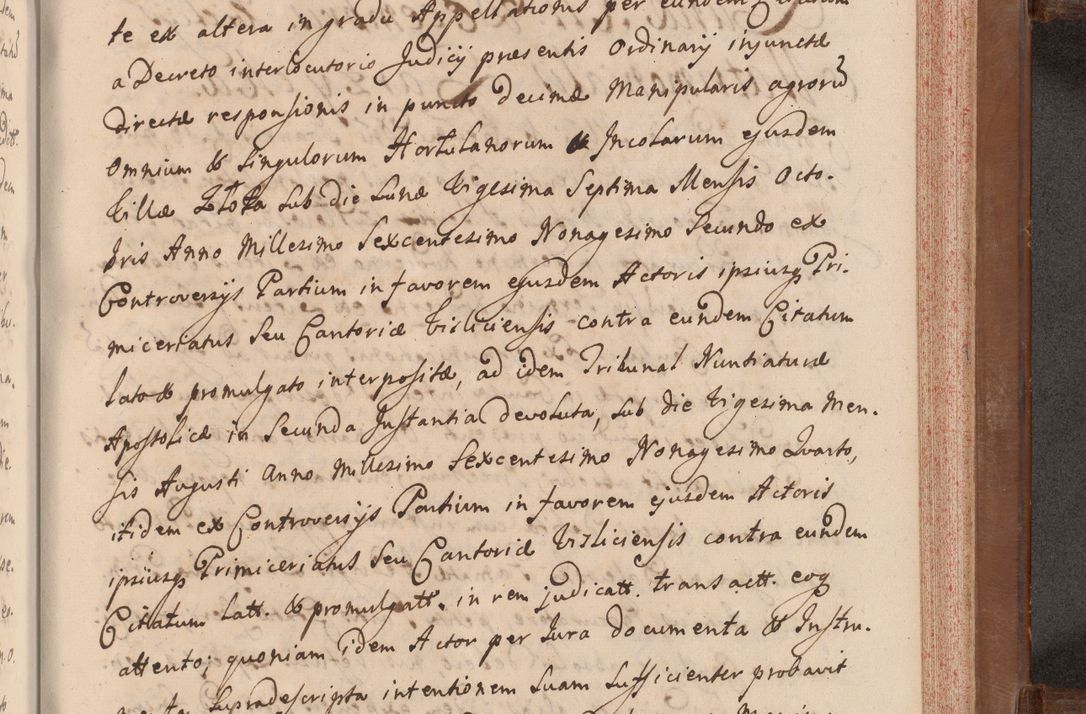 te ex altera in gradu Appellationis per eundem Citatum
a Decreto interlocutorio Judicij præsentis Ordinarij injunctæ
directæ responsionis in puncto decimæ Manipularis agrorũ
omnium & singulorum Hortulanorum & Incolarum ejusdem
Villæ Złota sub die Lunæ Vigesima Septima Mensis Octo-
bris Anno Millesimo Sexcentesimo Nonagesimo Secundo ex
Controversijs Partium in favorem ejusdem Actoris ipsiusq Pri-
miceriatus seu Cantoriæ Visliciensis contra eundem Citatum
lato & promulgato interpositæ, ad idem Tribunal Nuntiaturæ
Apostolicæ in Secunda Instantia devoluta, sub die Vigesima Men-
sis Augusti Anno Millesimo Sexcentesimo Nonagesimo Quarto,
itidem ex Controversijs Partium in favorem ejusdem Actoris
ipsiusq Primiceriatus seu Cantoriæ Visliciensis contra eundem
Citatum latt. & promulgatt. in rem judicatt. transactt. eoq
attento; quoniam idem Actor per Jura documenta & Instru-
supradescripta intentionem suam sufficienter probavit